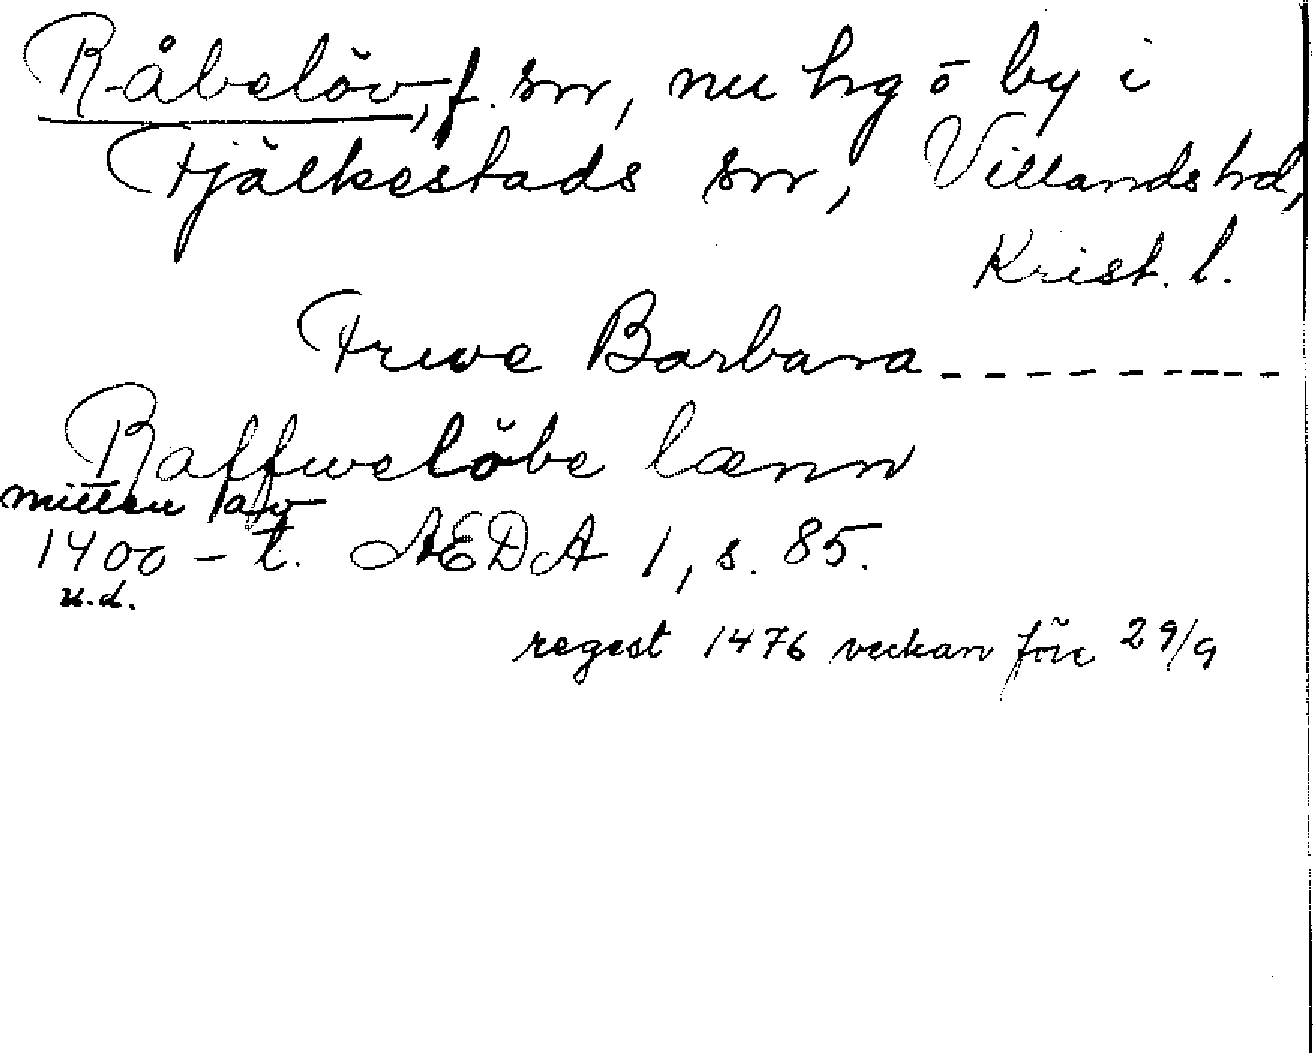 Råbelöv, f. sn, nu hg o by i
Fjälkestads sn, Villands hd,
Krist. l.
Frwe Barbara _ _ _ _ _ _ _ _ _
Raffwelöbe lænn
mitten
1400-t. ÆDA 1, s. 85.
u.d.
regest 1476 veckan före 29/9